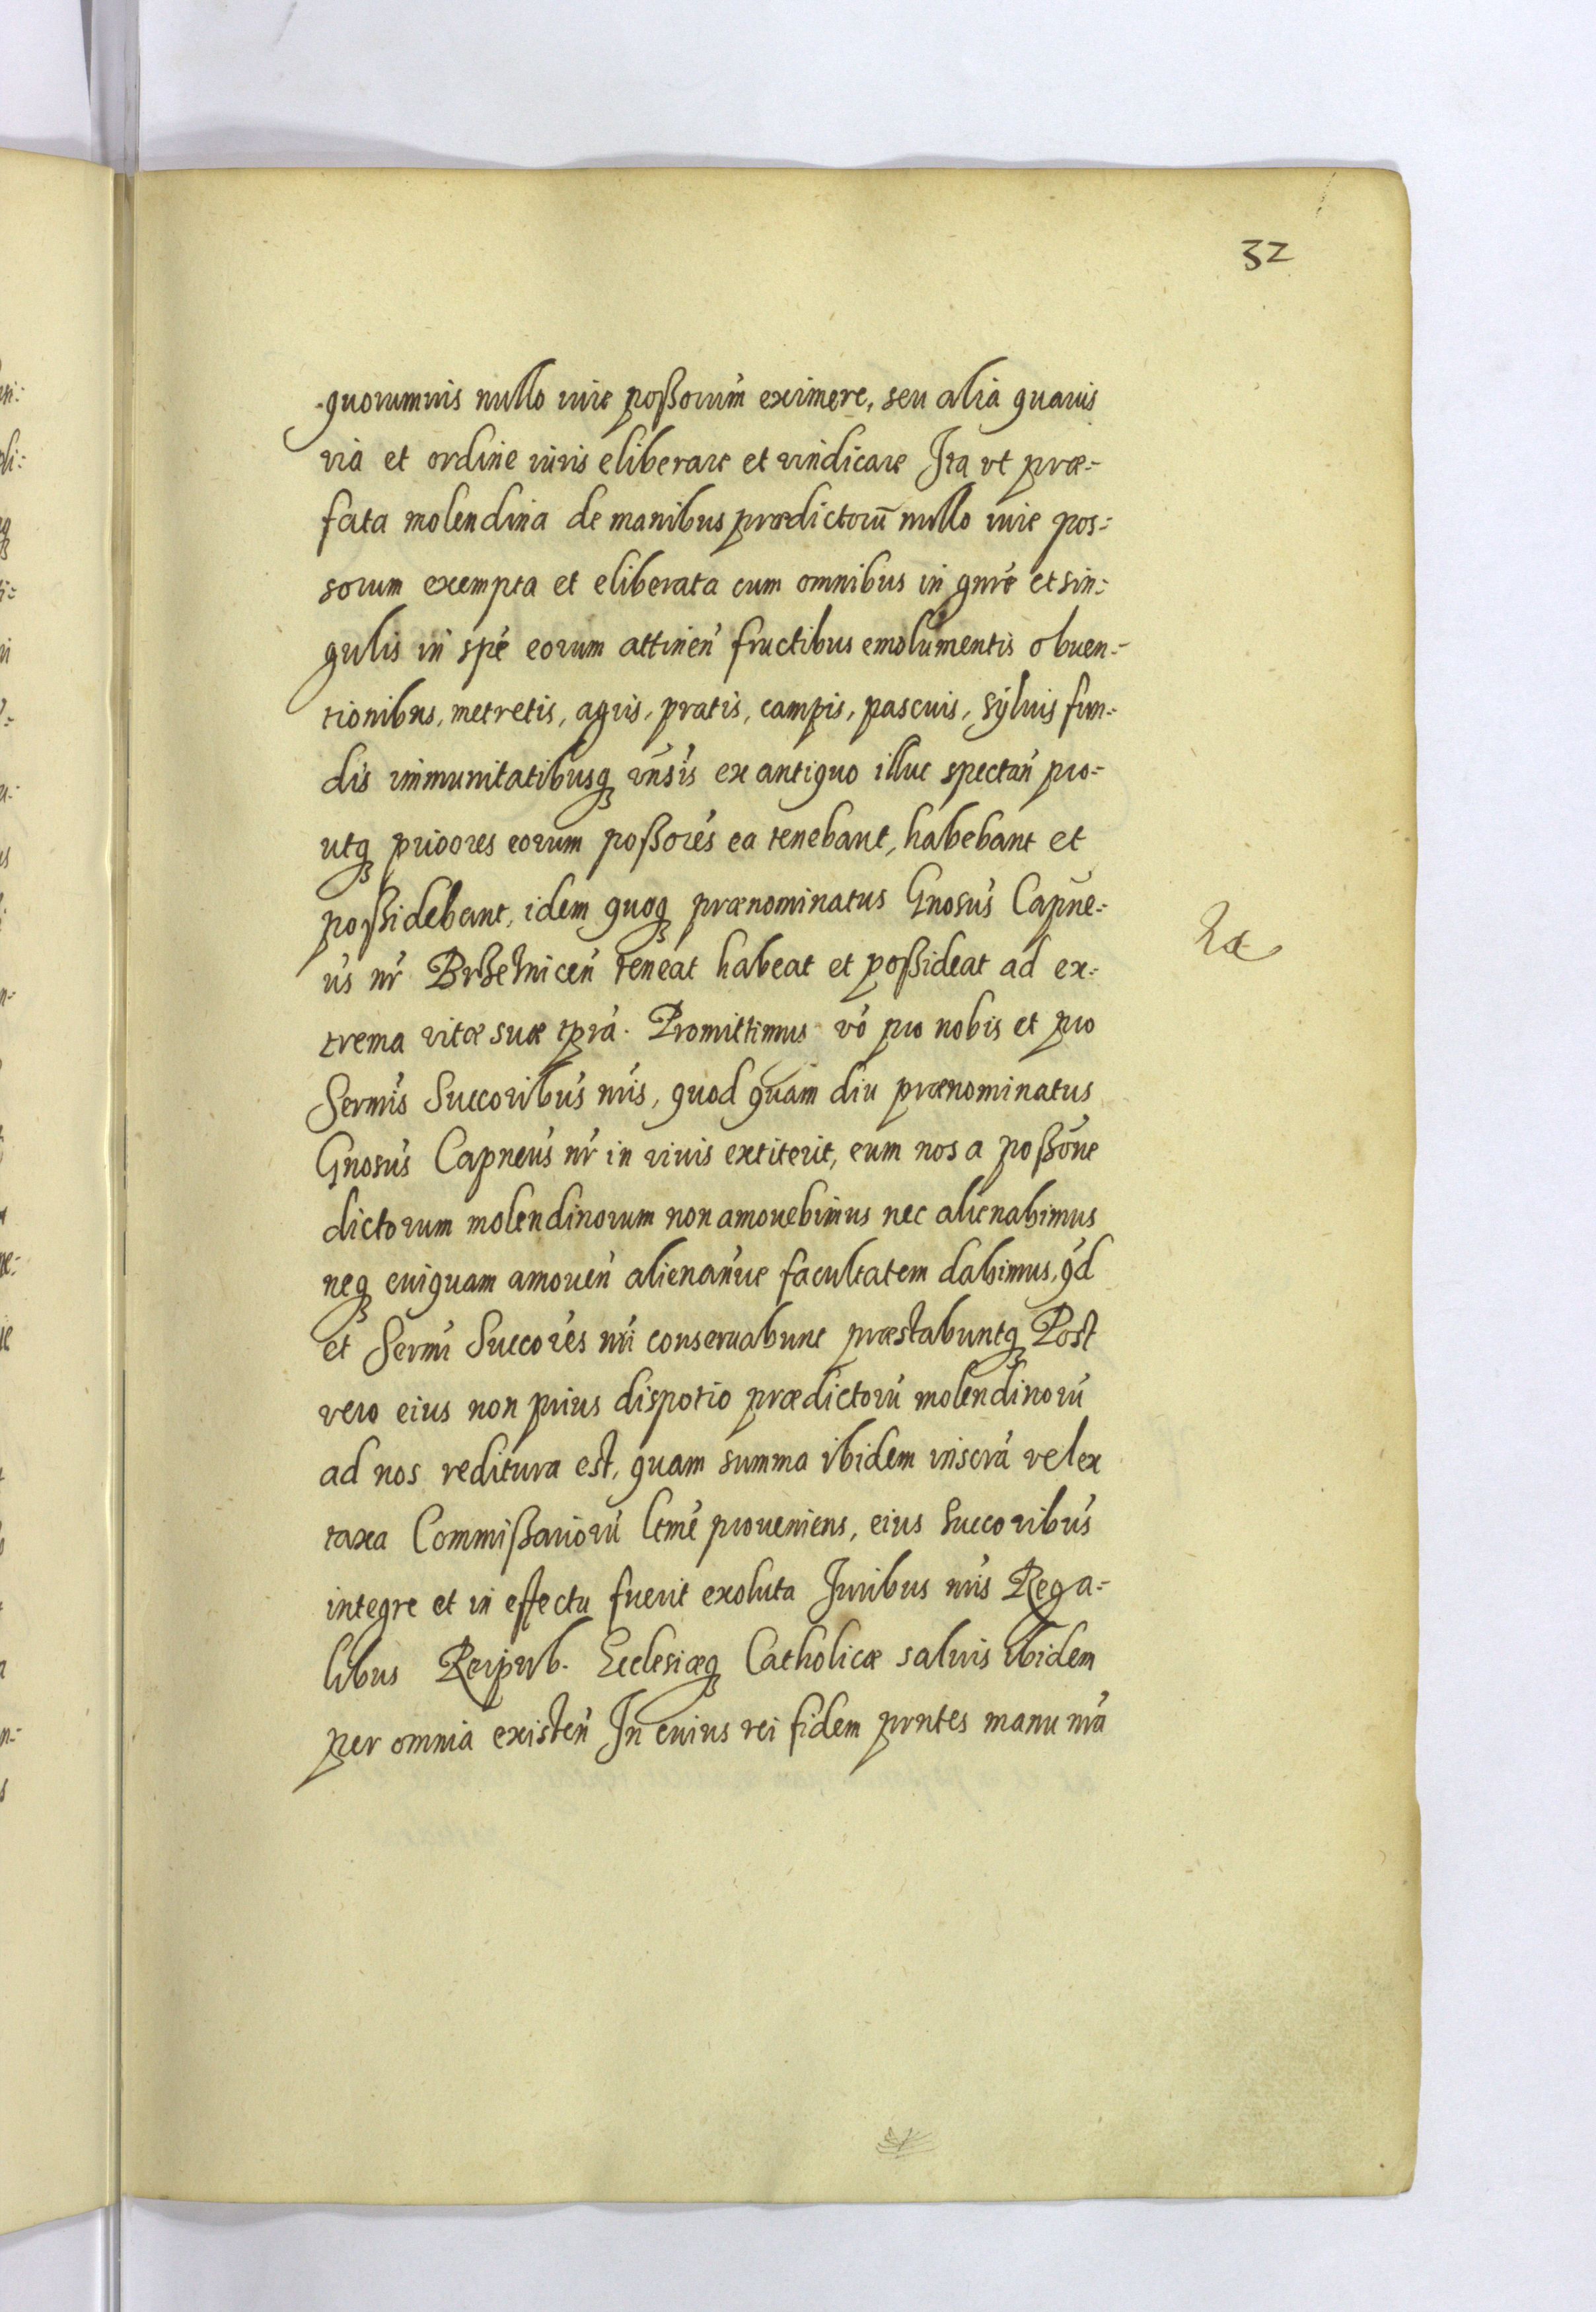 32
quorumuis nullo iure poßorum̃ eximere, seu alia quauis
via et ordine iuris eliberare et vindicare Ita vt præ-
fata molendina de manibus prædictorũ nullo iure pos-
sorum exempta et eliberata cum omnibus in gnre et sin-
gulis in spe eorum attineñ fructibus emolumentis obuen-
tionibus, metretis, agris, pratis, campis, pascuis, syluis fun-
dis immunitatibusq vnsis ex antiquo illuc spectañ pro-
utq priores eorum poßores ea tenebant, habebant et
poßidebant, idem quoq prænominatus Gnosus Capne-
us nr Brhetnicen teneat habeat et poßideat ad ex-
trema vitæ suæ tpra. Promittimus vo pro nobis et pro
Sermis Succoribus nris, quod quam diu prænominatus
Gnosus Capneus nr in viuis extiterit, eum nos a poßone
dictorum molendinorum non amouebimus nec alienabimus
neq cuiquam amouen alienanue facultatem dabimus, qd
et Sermi Succores nri conseruabunt præstabuntq Post
vero eius non prius dispotio prædictorũ molendinorũ
ad nos reditura est, quam summa ibidem inscra vel ex
taxa Commißariorũ ltme proueniens, eius Succoribus
integre et in effectu fuerit exoluta Iuribus nris Rega-
libus Reipub. Ecclesiæq Catholicæ saluis ibidem
per omnia existeñ In cuius rei fidem prntes manu nra